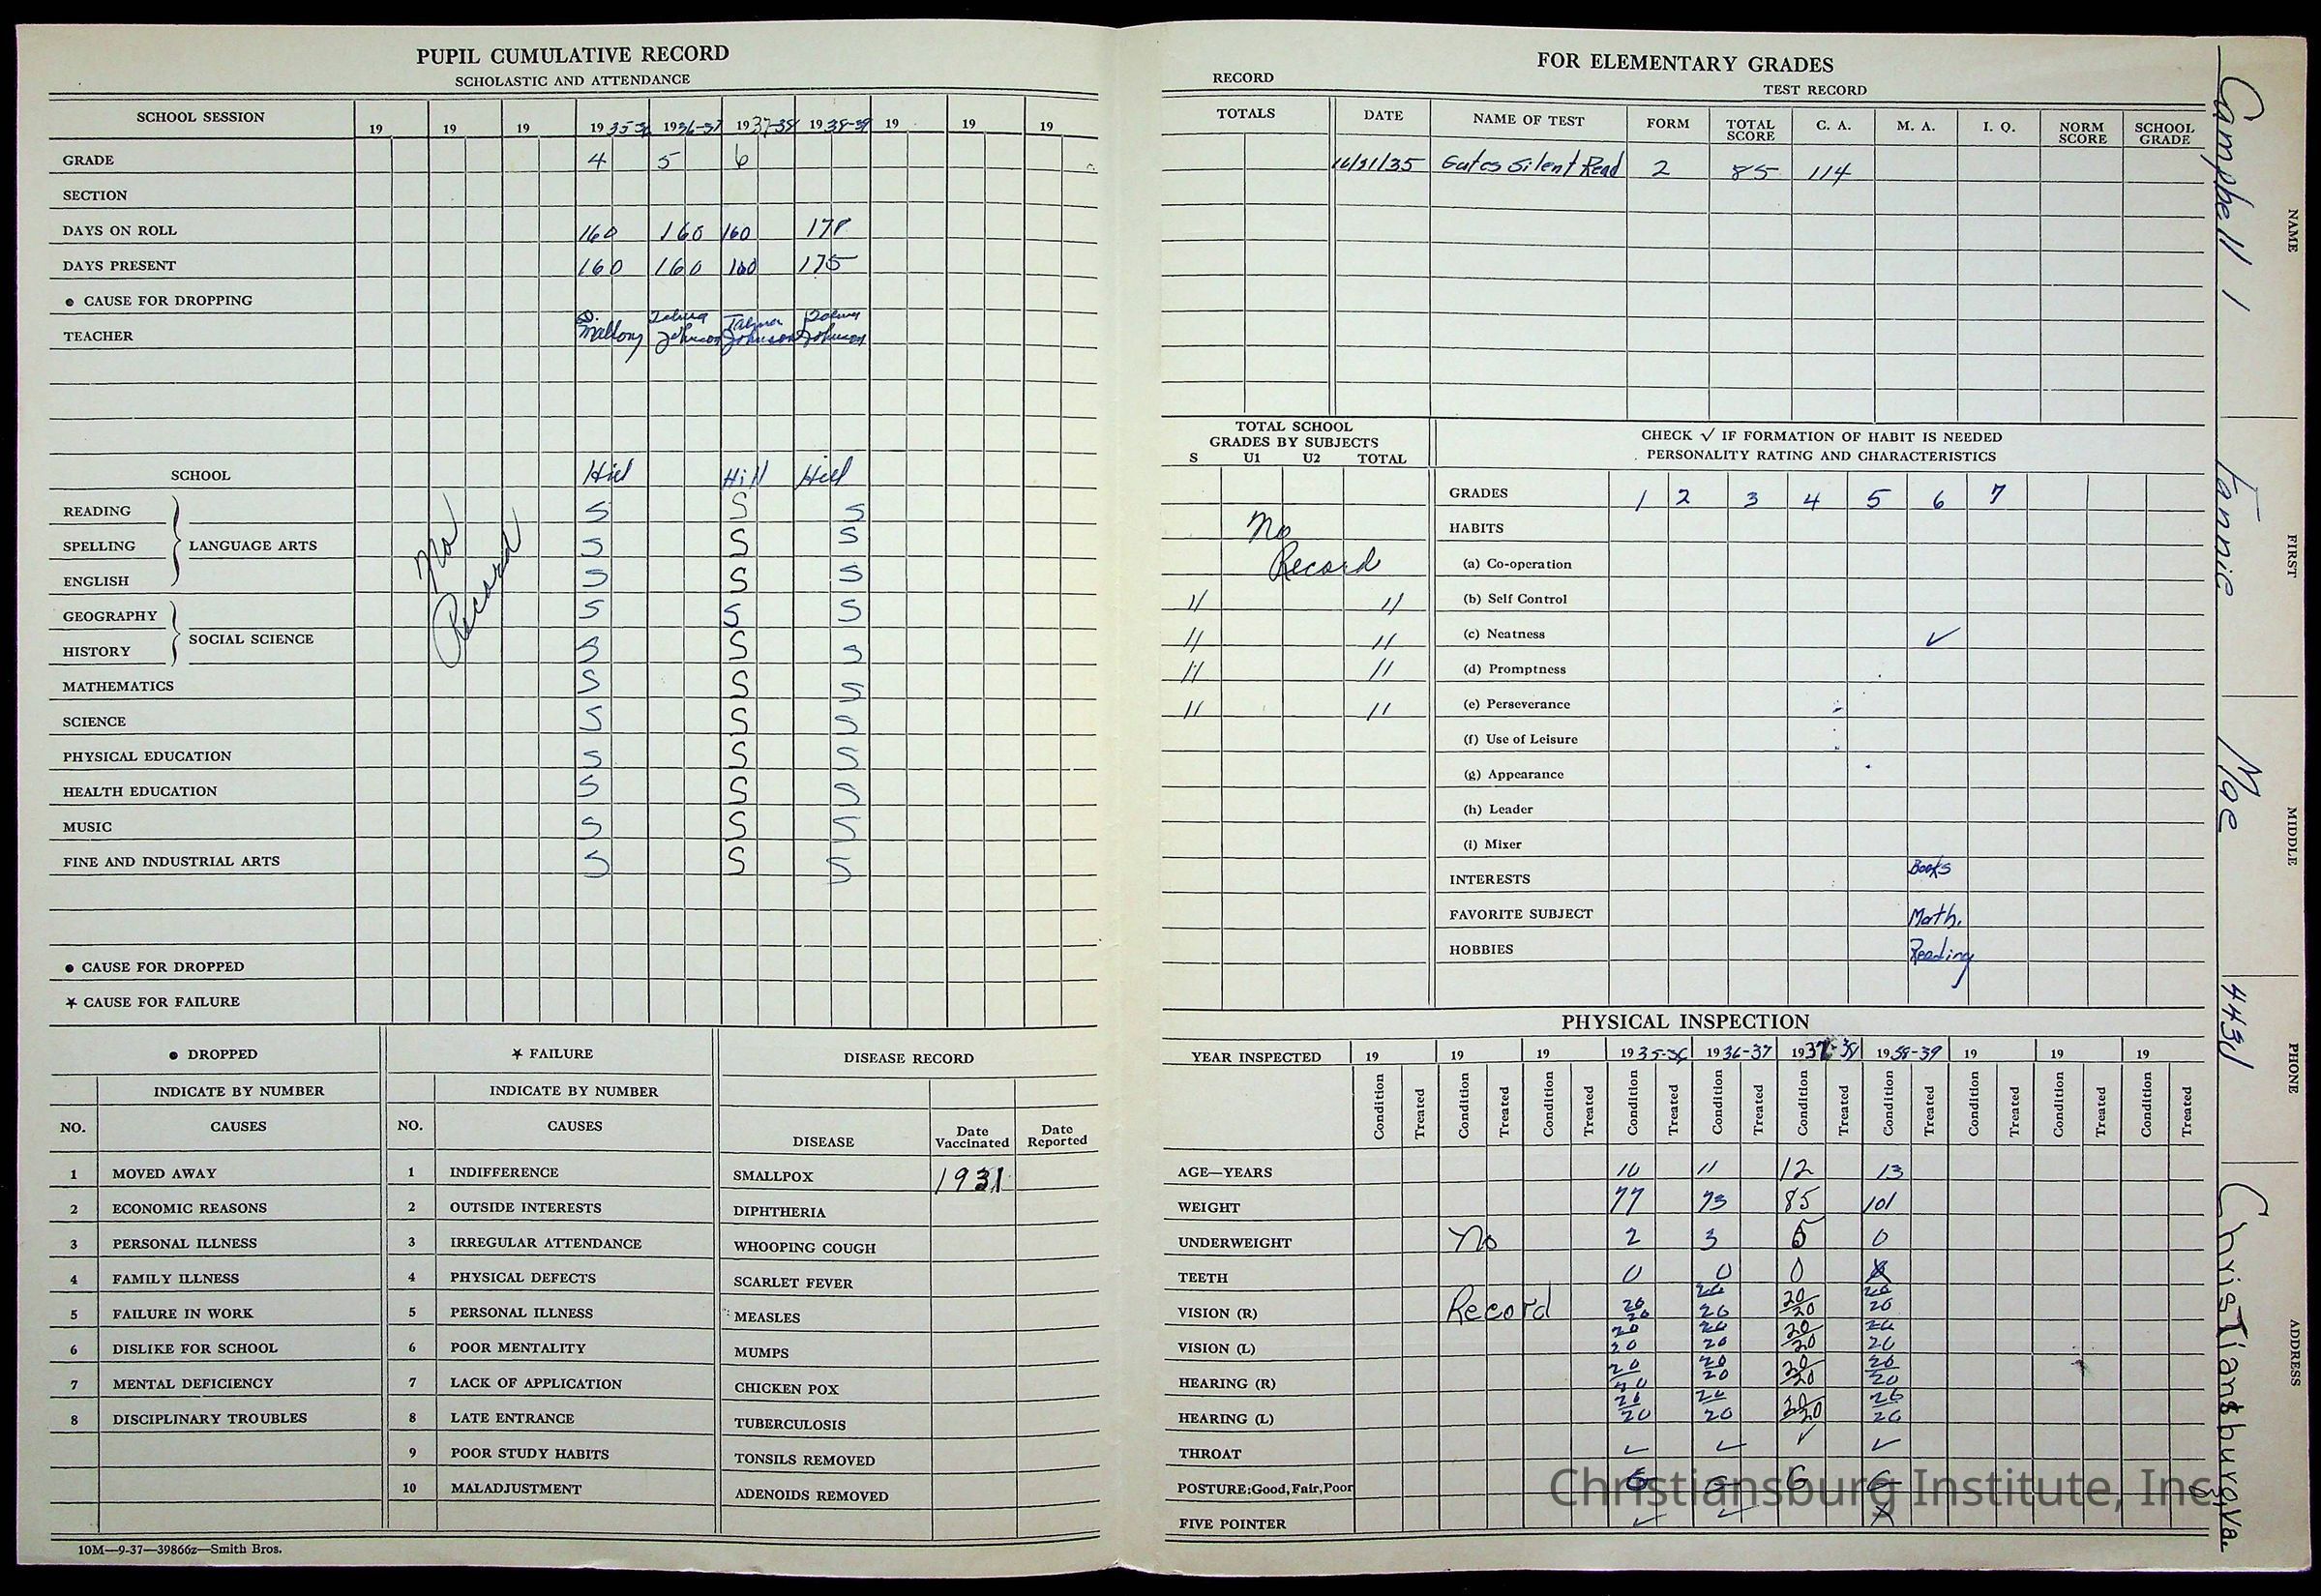 PUPIL CUMULATIVE RECORD
SCHOLASTIC AND ATTENDANCE
SCHOOL SESSION 19 19 19 1935-36 1936-37 1937-38 1938-39 19 19 19
GRADE 4 5 6
SECTION
DAYS ON ROLL 160 160 160 178
DAYS PRESENT 160 160 160 175
● CAUSE FOR DROPPING
TEACHER Johnson Johnson Johnson
SCHOOL Hill Hill Hill
No Record
READING S S S
SPELLING LANGUAGE ARTS S S S
ENGLISH S S S
GEOGRAPHY S S S
SOCIAL SCIENCE
HISTORY S S S
MATHEMATICS S S S
SCIENCE S S S
PHYSICAL EDUCATION S S S
HEALTH EDUCATION S S S
MUSIC S S S
FINE AND INDUSTRIAL ARTS S S S
● CAUSE FOR DROPPED
★ CAUSE FOR FAILURE
● DROPPED
INDICATE BY NUMBER
NO. CAUSES
1 MOVED AWAY
2 ECONOMIC REASONS
3 PERSONAL ILLNESS
4 FAMILY ILLNESS
5 FAILURE IN WORK
6 DISLIKE FOR SCHOOL
7 MENTAL DEFICIENCY
8 DISCIPLINARY TROUBLES
★ FAILURE
INDICATE BY NUMBER
NO. CAUSES
1 INDIFFERENCE
2 OUTSIDE INTERESTS
3 IRREGULAR ATTENDANCE
4 PHYSICAL DEFECTS
5 PERSONAL ILLNESS
6 POOR MENTALITY
7 LACK OF APPLICATION
8 LATE ENTRANCE
9 POOR STUDY HABITS
10 MALADJUSTMENT
DISEASE RECORD
DISEASE Date Vaccinated Date Reported
SMALLPOX 1931
DIPHTHERIA
WHOOPING COUGH
SCARLET FEVER
MEASLES
MUMPS
CHICKEN POX
TUBERCULOSIS
TONSILS REMOVED
ADENOIDS REMOVED
10M—9-37—39866z—Smith Bros.
FOR ELEMENTARY GRADES
RECORD
TEST RECORD
TOTALS DATE NAME OF TEST FORM TOTAL SCORE C. A. M. A. I. Q. NORM SCORE SCHOOL GRADE
Gates Silent Read 2 85 114
TOTAL SCHOOL
GRADES BY SUBJECTS
S U1 U2 TOTAL
No
Record
11 11
11 11
11 11
11 11
CHECK √ IF FORMATION OF HABIT IS NEEDED
PERSONALITY RATING AND CHARACTERISTICS
GRADES 1 2 3 4 5 6 7
HABITS
(a) Co-operation
(b) Self Control
(c) Neatness ✓
(d) Promptness
(e) Perseverance
(f) Use of Leisure
(g) Appearance
(h) Leader
(i) Mixer
INTERESTS Books
FAVORITE SUBJECT Math.
HOBBIES Reading
PHYSICAL INSPECTION
YEAR INSPECTED 19 19 19 1935-36 1936-37 1937-38 1938-39 19 19 19
Condition Treated Condition Treated Condition Treated Condition Treated Condition Treated Condition Treated Condition Treated Condition Treated Condition Treated Condition Treated
AGE—YEARS 10 11 12 13
WEIGHT 77 73 85 101
UNDERWEIGHT No 2 3 5 0
TEETH 0 0 0
VISION (R) Record 20/20 20/20 20/20 20/20
VISION (L) 20/20 20/20 20/20 20/20
HEARING (R) 20/20 20/20 20/20 20/20
HEARING (L) 20/20 20/20 20/20 20/20
THROAT ✓ ✓ ✓ ✓
POSTURE: Good, Fair, Poor G G G G
FIVE POINTER ✓ ✓ X
Christiansburg Institute, Inc.
NAME FIRST MIDDLE PHONE ADDRESS
Campbell 1 Fannie Mae 4431 Christiansburg, Va.